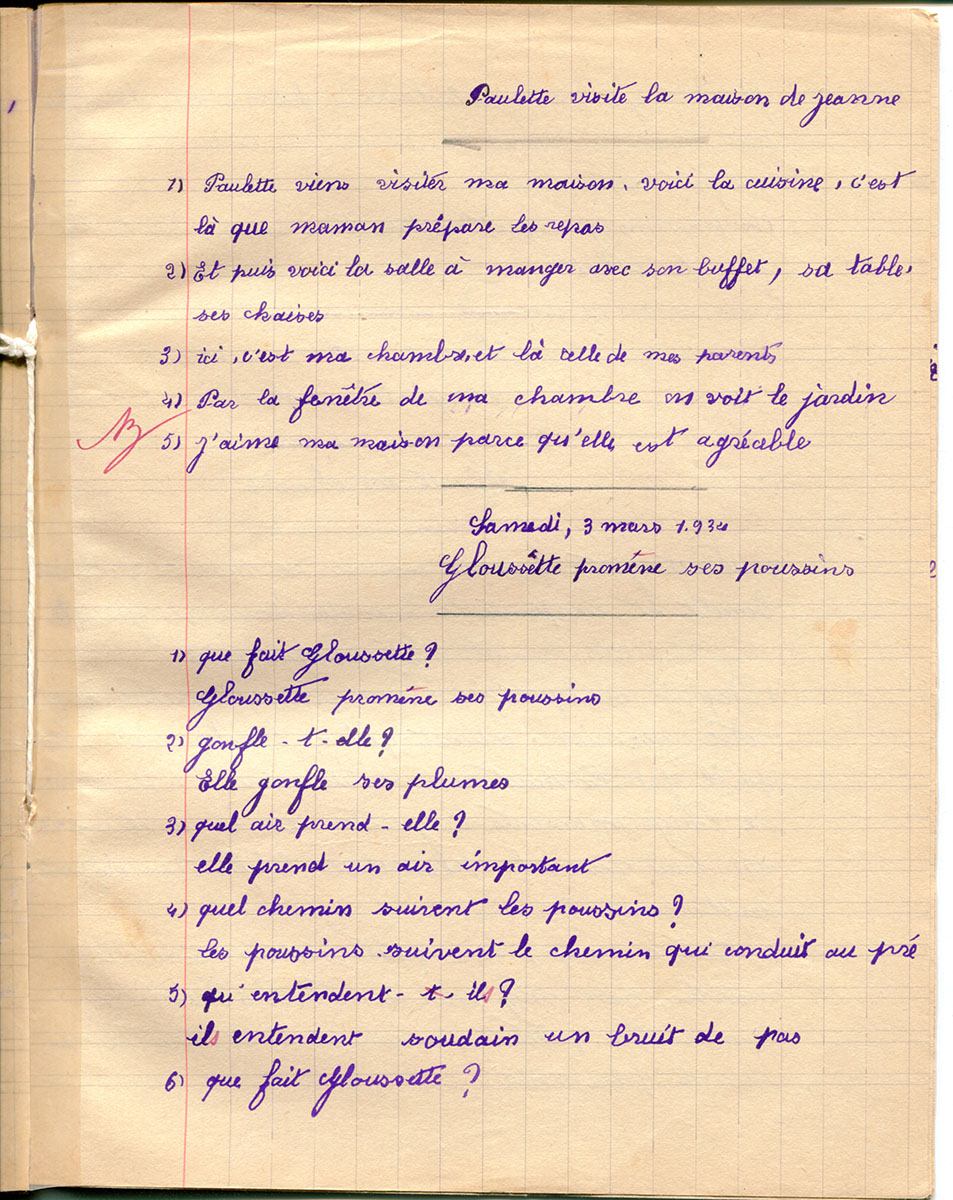 Paulette visite la maison de jeanne
1) Paulette viens visiter ma maison, voici la cuisine, c'est
là que maman prépare les repas
2) Et puis voici la salle à manger avec son buffet, sa table,
ses chaises
3) ici, c'est ma chambre, et là celle de mes parents
4) Par la fenêtre de ma chambre on voit le jardin
5) j'aime ma maison parce qu'elle est agréable
Samedi, 3 mars 1.934
Gloussette promène ses poussins
1) que fait Gloussette?
Gloussette promène ses poussins
2) gonfle - t - elle?
Elle gonfle ses plumes
3) quel air prend - elle?
elle prend un air important
4) quel chemin suivent les poussins?
les poussins suivent le chemin qui conduit au pré
5) qu'entendent - t - ils?
ils entendent soudain un bruit de pas
6) que fait Gloussette?